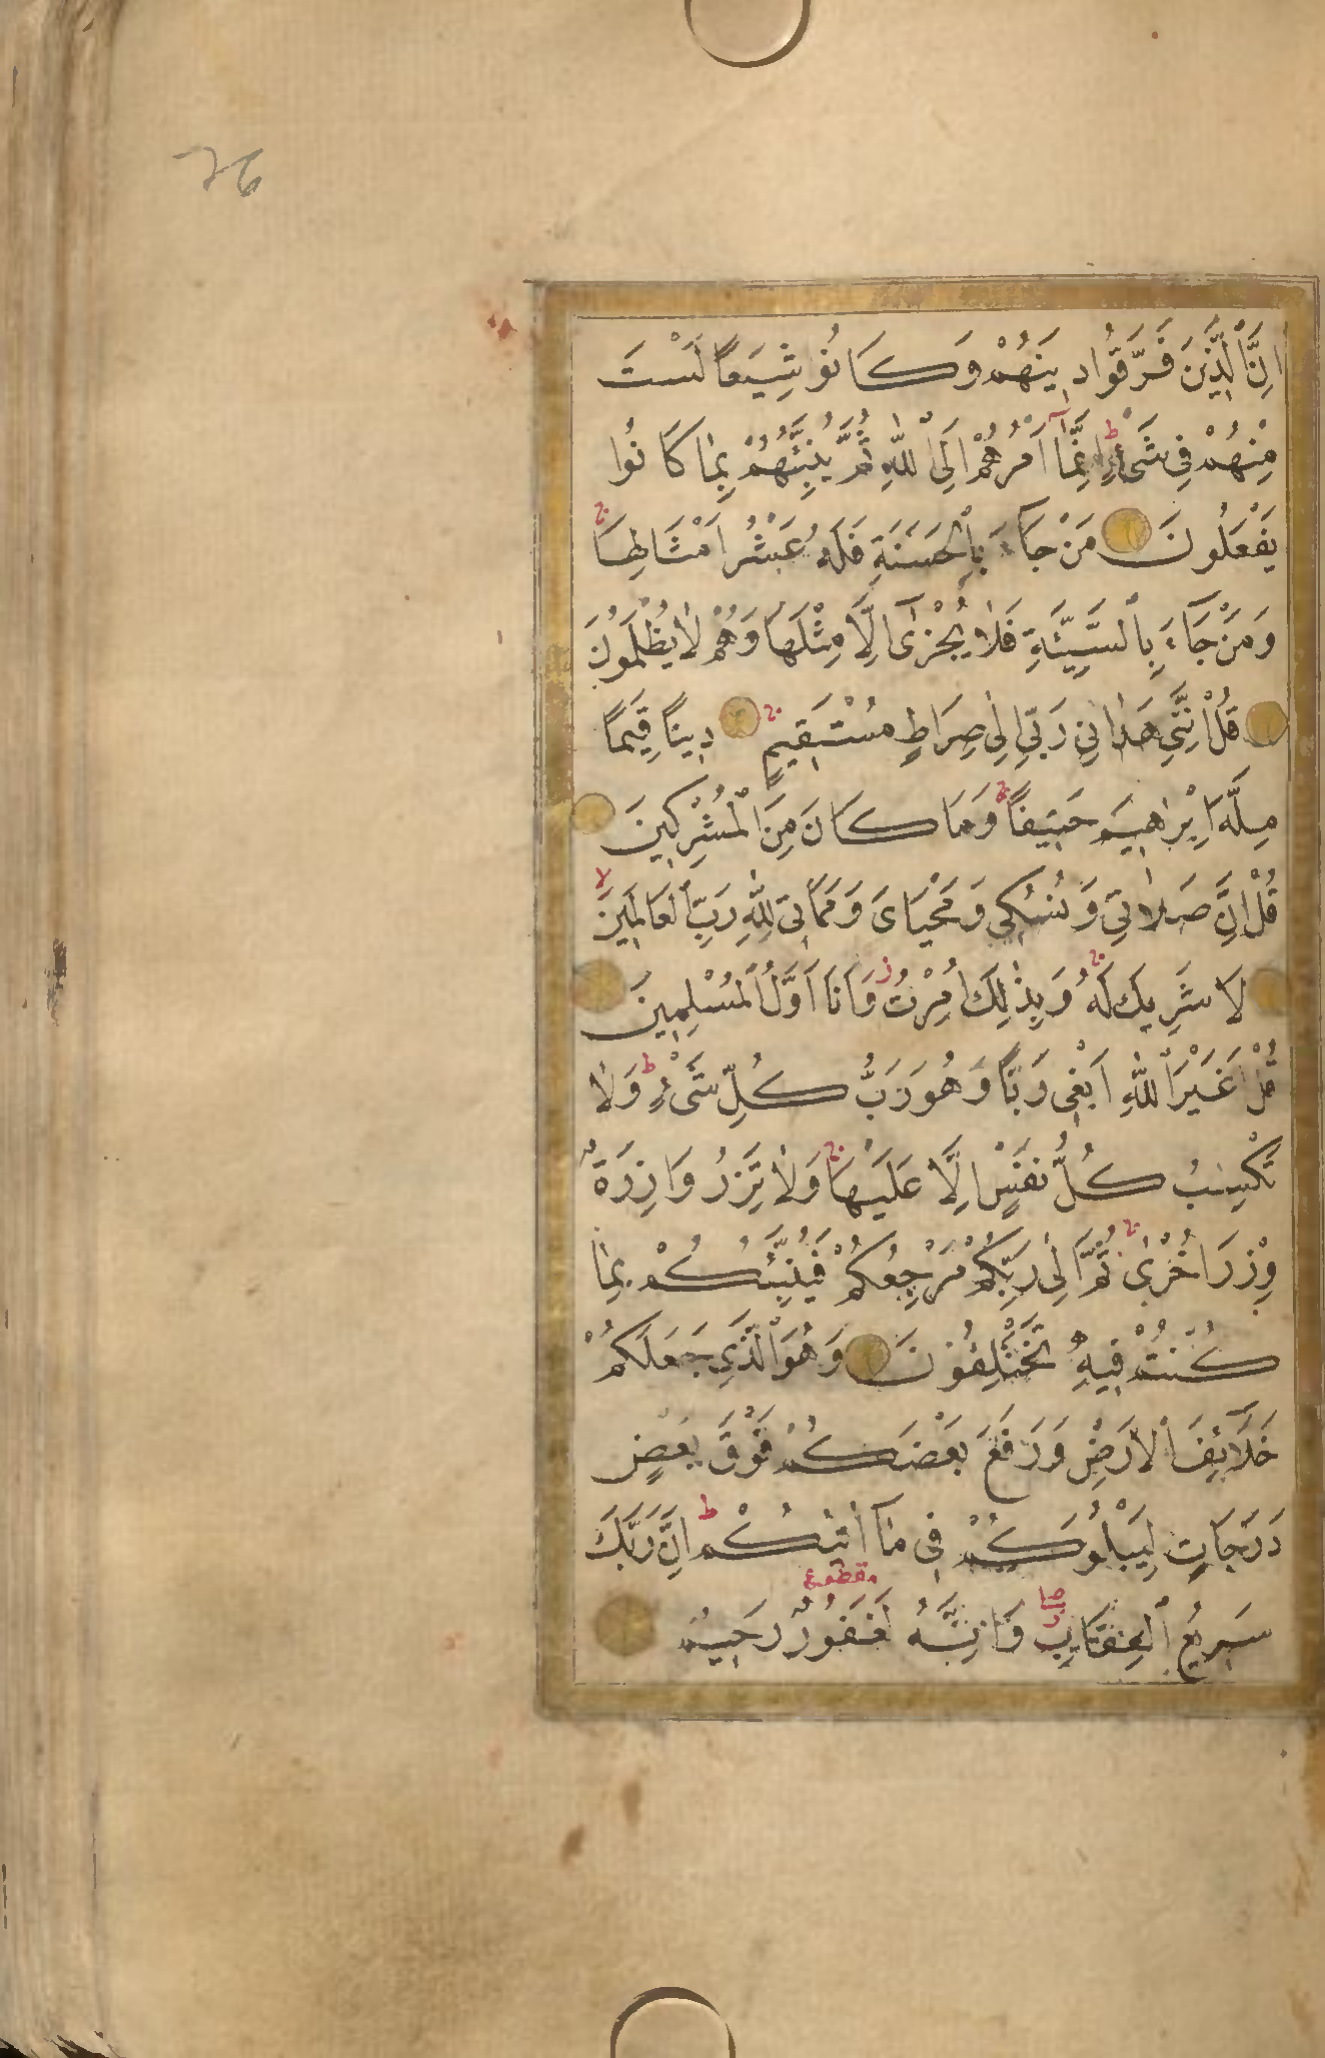 26
اِنَّ الَّذِينَ فَرَّقُوا دِينَهُمْ وَكَانُوا شِيَعًا لَسْتَ
مِنْهُمْ فِي شَيْءٍ ط اِنَّمَآ اَمْرُهُمْ اِلَى اللّٰهِ ثُمَّ يُنَبِّئُهُمْ بِمَا كَانُوا
يَفْعَلُونَ مَنْ جَآءَ بِالْحَسَنَةِ فَلَهُ عَشْرُ اَمْثَالِهَا ج
وَمَنْ جَآءَ بِالسَّيِّئَةِ فَلَا يُجْزٰىٓ اِلَّا مِثْلَهَا وَهُمْ لَا يُظْلَمُونَ
قُلْ اِنَّنِي هَدٰانِي رَبِّي اِلٰى صِرَاطٍ مُسْتَقِيمٍ ج دِينًا قِيَمًا
مِلَّةَ اِبْرٰاهِيمَ حَنِيفًا ج وَمَا كَانَ مِنَ الْمُشْرِكِينَ
قُلْ اِنَّ صَلَاتِي وَنُسُكِي وَمَحْيَايَ وَمَمَاتِي لِلّٰهِ رَبِّ الْعَالَمِينَ لا
لَا شَرِيكَ لَهُ ج وَبِذٰلِكَ اُمِرْتُ ز وَاَنَا اَوَّلُ الْمُسْلِمِينَ
قُلْ اَغَيْرَ اللّٰهِ اَبْغِي رَبًّا وَهُوَ رَبُّ كُلِّ شَيْءٍ ط وَلَا
تَكْسِبُ كُلُّ نَفْسٍ اِلَّا عَلَيْهَا ج وَلَا تَزِرُ وَازِرَةٌ
وِزْرَ اُخْرٰى ج ثُمَّ اِلٰى رَبِّكُمْ مَرْجِعُكُمْ فَيُنَبِّئُكُمْ بِمَا
كُنْتُمْ فِيهِ تَخْتَلِفُونَ وَهُوَ الَّذِي جَعَلَكُمْ
خَلَآئِفَ الْاَرْضِ وَرَفَعَ بَعْضَكُمْ فَوْقَ بَعْضٍ
دَرَجَاتٍ لِيَبْلُوَكُمْ فِي مَآ اٰتٰىكُمْ ط اِنَّ رَبَّكَ
سَرِيعُ الْعِقَابِ وَاِنَّهُ لَغَفُورٌ رَحِيمٌ